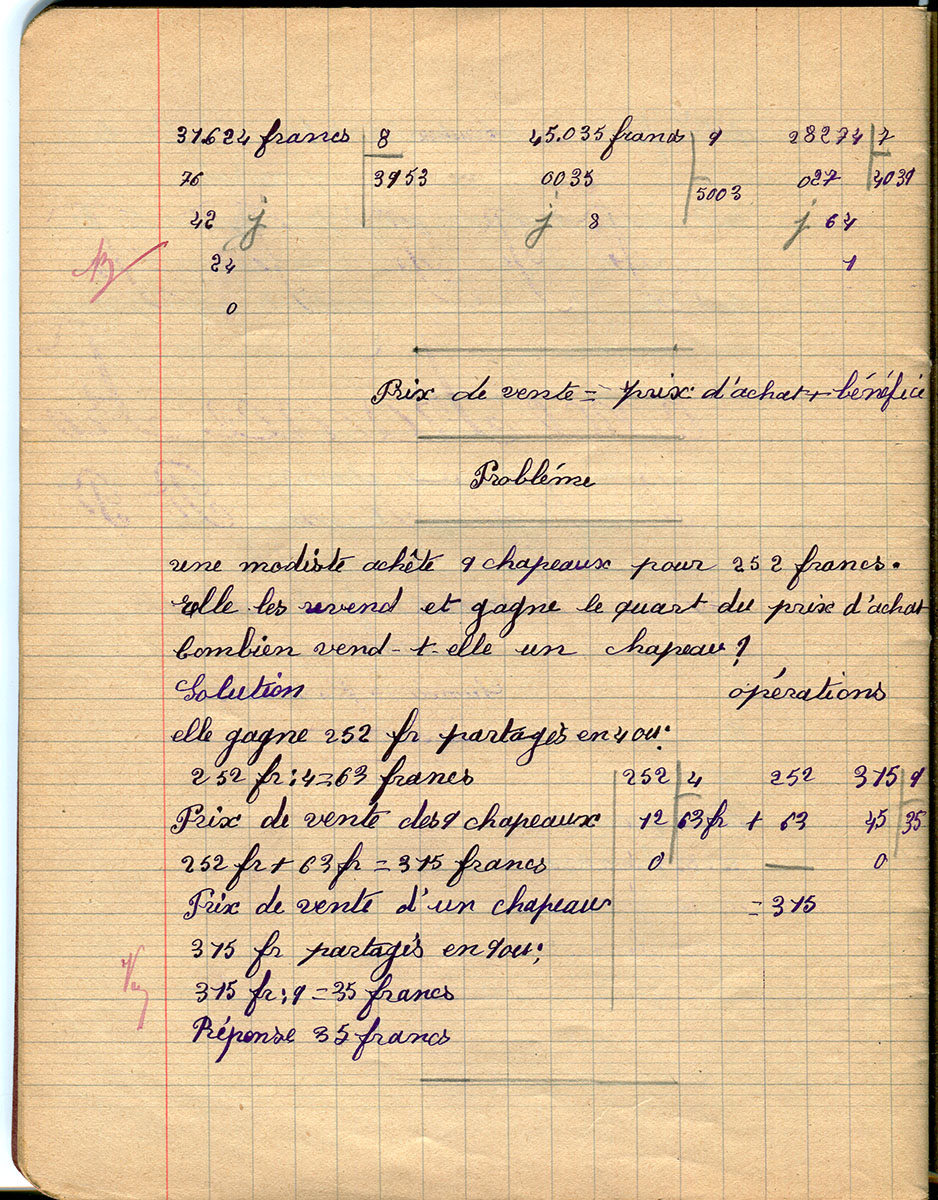 31.624 francs 8 45.035 francs 9 28274 7
76 3953 0035 5003 027 4039
42 j j 8 j 64
24 1
0
Prix de vente = prix d'achat + bénéfice
Problème
une modiste achête 9 chapeaux pour 252 francs.
Elle les revend et gagne le quart du prix d'achat
Combien vend-t-elle un chapeau ?
Solution opérations
elle gagne 252 fr partagés en 4 ou:
252 fr : 4 = 63 francs 252 4 252 315 9
Prix de vente des 9 chapeaux 12 63 fr + 63 45 35
252 fr + 63 fr = 315 francs 0 0
Prix de vente d'un chapeau = 315
315 fr partagés en 9 ou:
315 fr : 9 = 35 francs
Réponse 35 francs